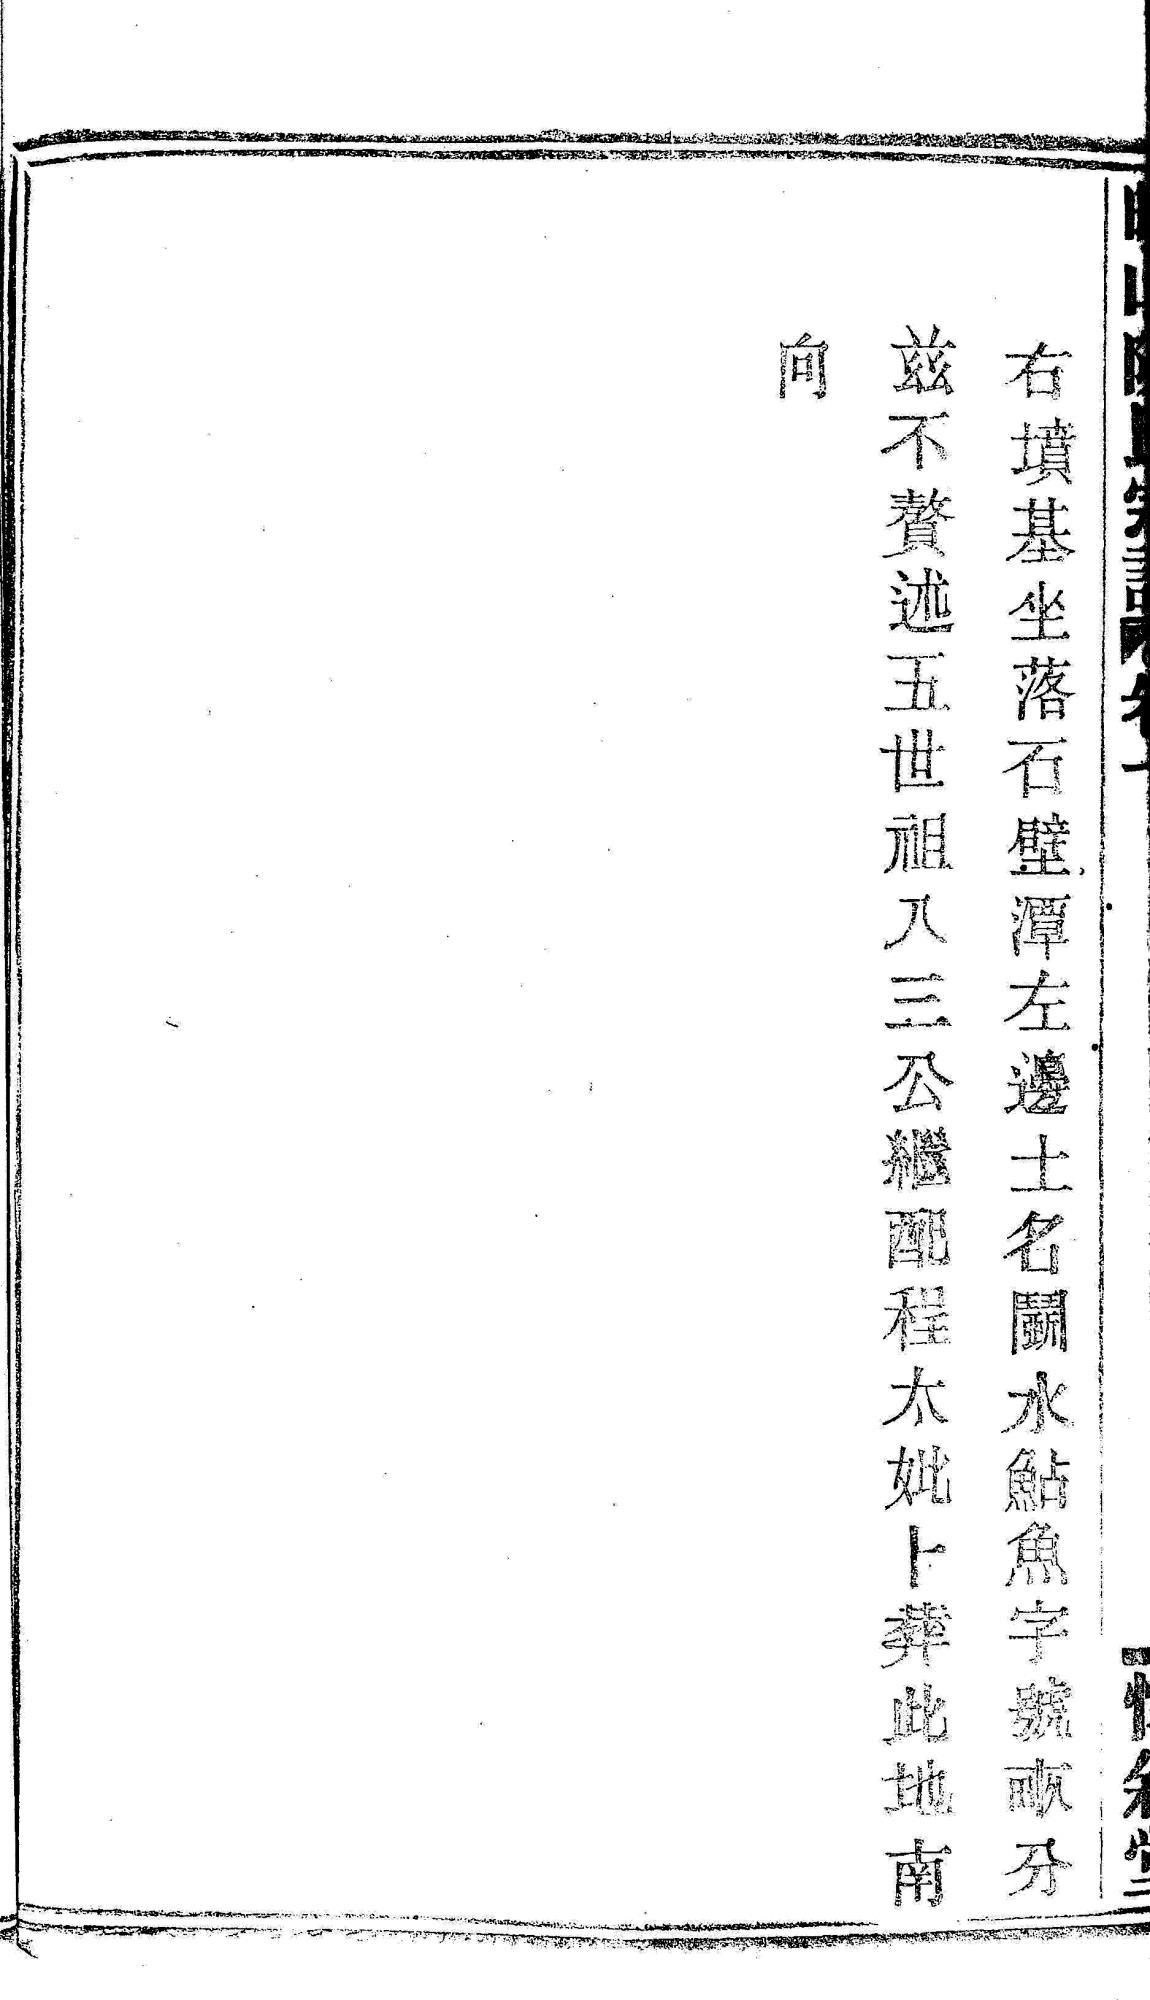 右墳基坐落石壁潭左邊土名鬬水鮎魚字號畝分
茲不贅述五世祖八三公繼配程太妣卜葬此地南
向